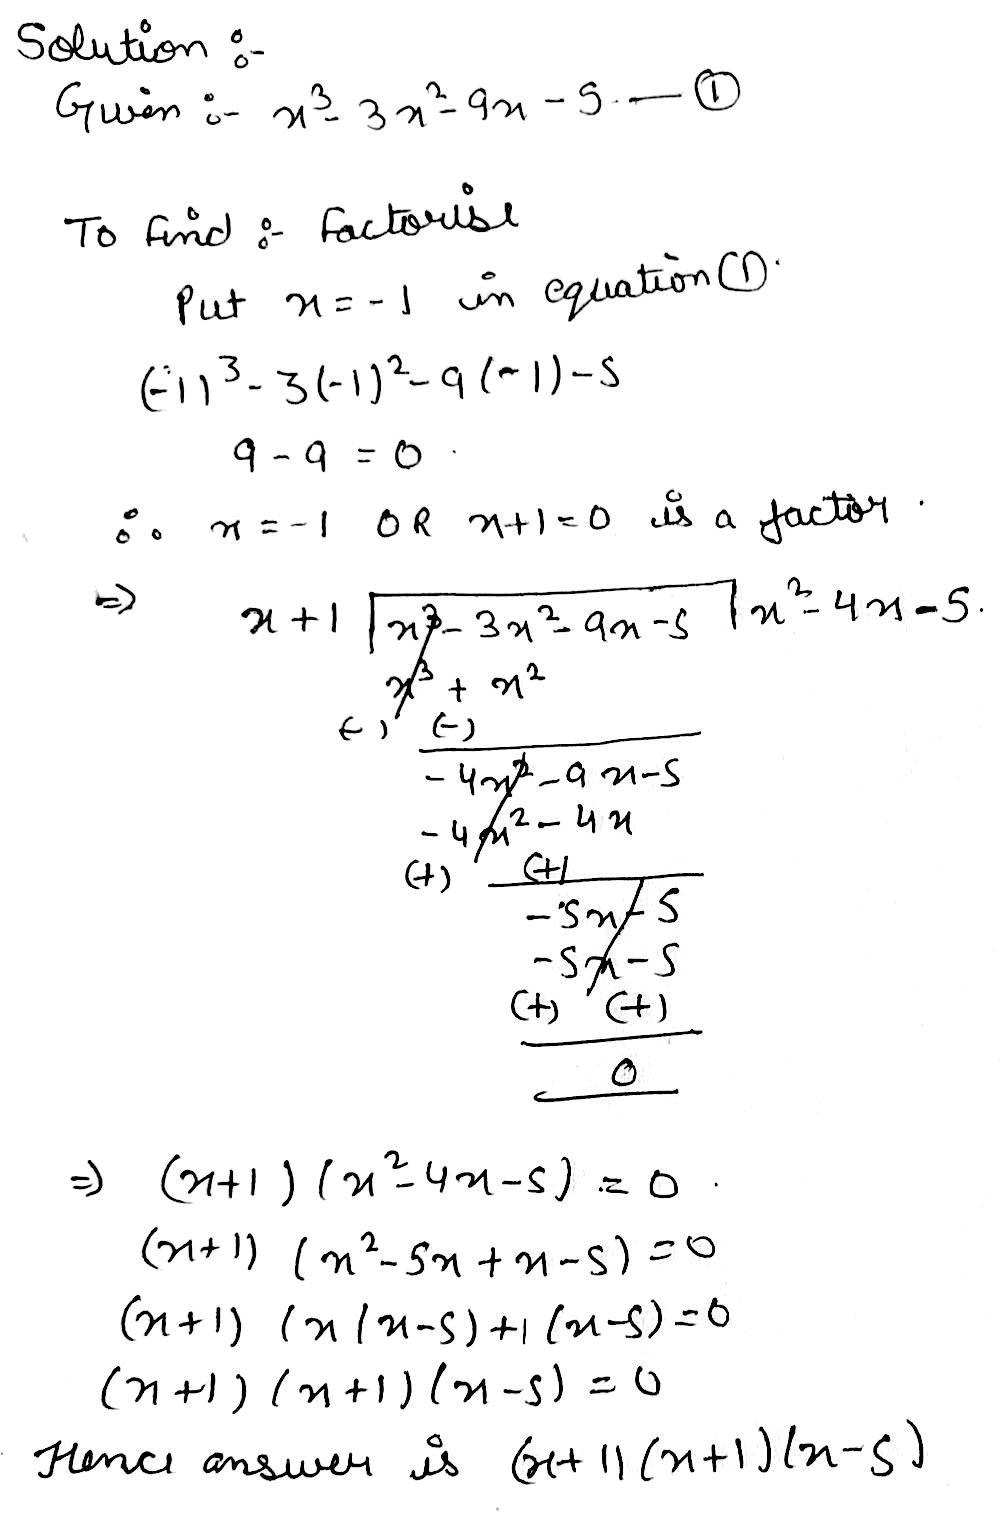 Solution :-
Given :- x³- 3x²- 9x - 5. — ①
To find :- factorise
Put x = - 1 in equation ①.
(-1)³ - 3(-1)² - 9(-1) - 5
9 - 9 = 0.
∴ x = - 1 OR x+1=0 is a factor.
⇒ x + 1 | x³- 3x²- 9x - 5 | x²- 4x - 5.
x³ + x²
(-) (-)
- 4x² - 9x - 5
- 4x² - 4x
(+) (+)
- 5x - 5
- 5x - 5
(+) (+)
0
⇒ (x+1) (x²- 4x - 5) = 0.
(x+1) (x²- 5x + x - 5) = 0
(x+1) (x(x-5) +1(x-5) = 0
(x+1) (x+1) (x-5) = 0
Hence answer is (x+1)(x+1)(x-5)